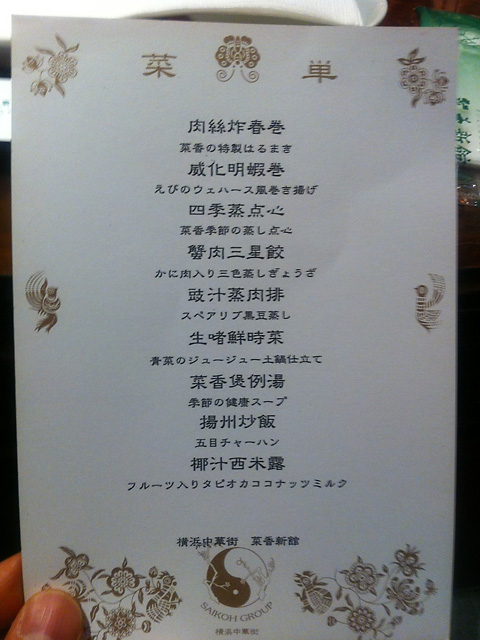 菜 単
肉絲炸春巻
菜香の特製はるまき
威化明蝦巻
えびのウェハース風巻き揚げ
四季蒸点心
菜香季節の蒸し点心
蟹肉三星餃
かに肉入り三色蒸しぎょうざ
豉汁蒸肉排
スペアリブ黒豆蒸し
生啫鮮時菜
青菜のジュージュー土鍋仕立て
菜香煲例湯
季節の健康スープ
揚州炒飯
五目チャーハン
椰汁西米露
フルーツ入りタピオカココナッツミルク
横浜中華街 菜香新館
SAIKOH GROUP
横浜中華街